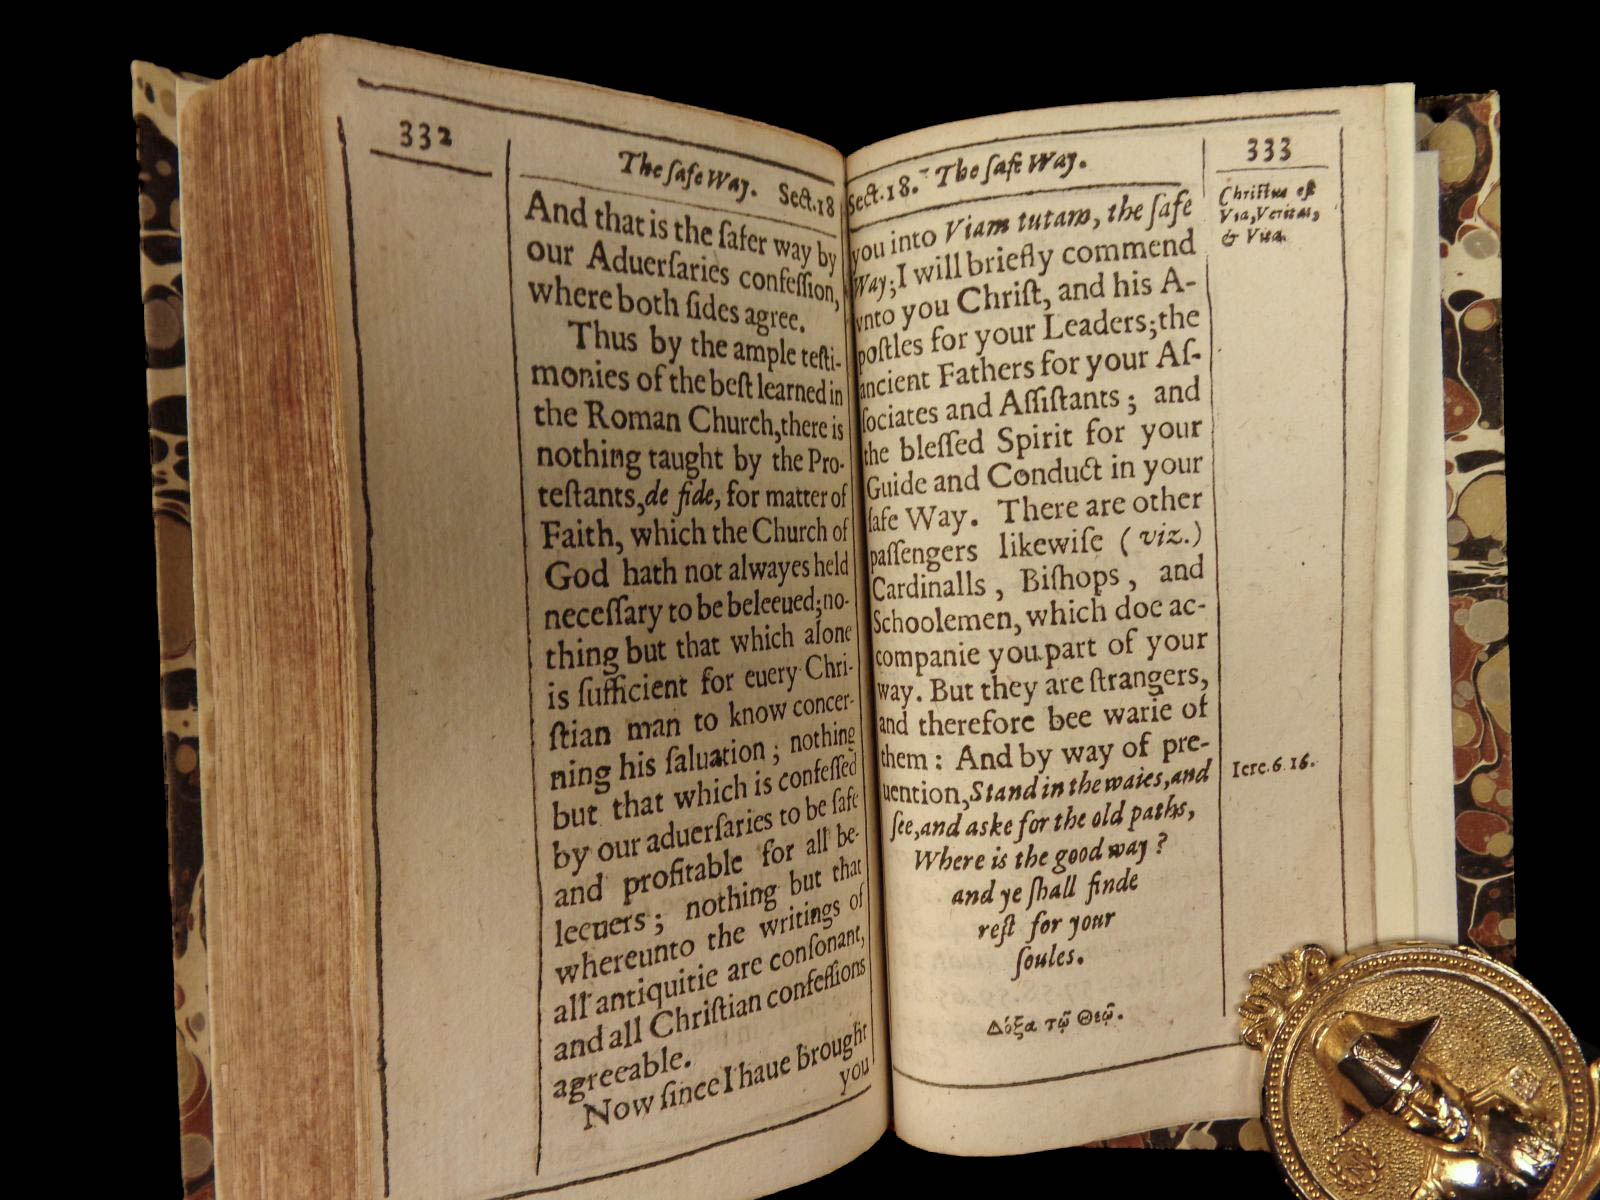 332
The ſafe Way. Sect.18
And that is the ſafer way by
our Aduerſaries confeſſion,
where both ſides agree.
Thus by the ample teſti-
monies of the beſt learned in
the Roman Church,there is
nothing taught by the Pro-
teſtants,de fide, for matter of
Faith, which the Church of
God hath not alwayes held
neceſſary to be beleeued;no-
thing but that which alone
is ſufficient for euery Chri-
ſtian man to know concer-
ning his ſaluation ; nothing
but that which is confeſſed
by our aduerſaries to be ſafe
and profitable for all be-
leeuers ; nothing but that
whereunto the writings of
all antiquitie are conſonant,
and all Chriſtian confeſſions
agreeable.
Now ſince I haue brought
you
Sect.18. The ſafe Way.
333
you into Viam tutam, the ſafe
Way;I will briefly commend
vnto you Chriſt, and his A-
poſtles for your Leaders;the
ancient Fathers for your Aſ-
ſociates and Aſſiſtants ; and
the bleſſed Spirit for your
Guide and Conduct in your
ſafe Way. There are other
paſſengers likewiſe ( viz.)
Cardinalls , Biſhops , and
Schoolemen, which doe ac-
companie you part of your
way. But they are ſtrangers,
and therefore bee warie of
them : And by way of pre-
uention,Stand in the waies,and
ſee,and aske for the old paths,
Where is the good way ?
and ye ſhall finde
reſt for your
ſoules.
Δόξα τῷ Θεῷ.
Chriſtus eſt
Via,Veritas,
& Vita.
Iere.6.16.